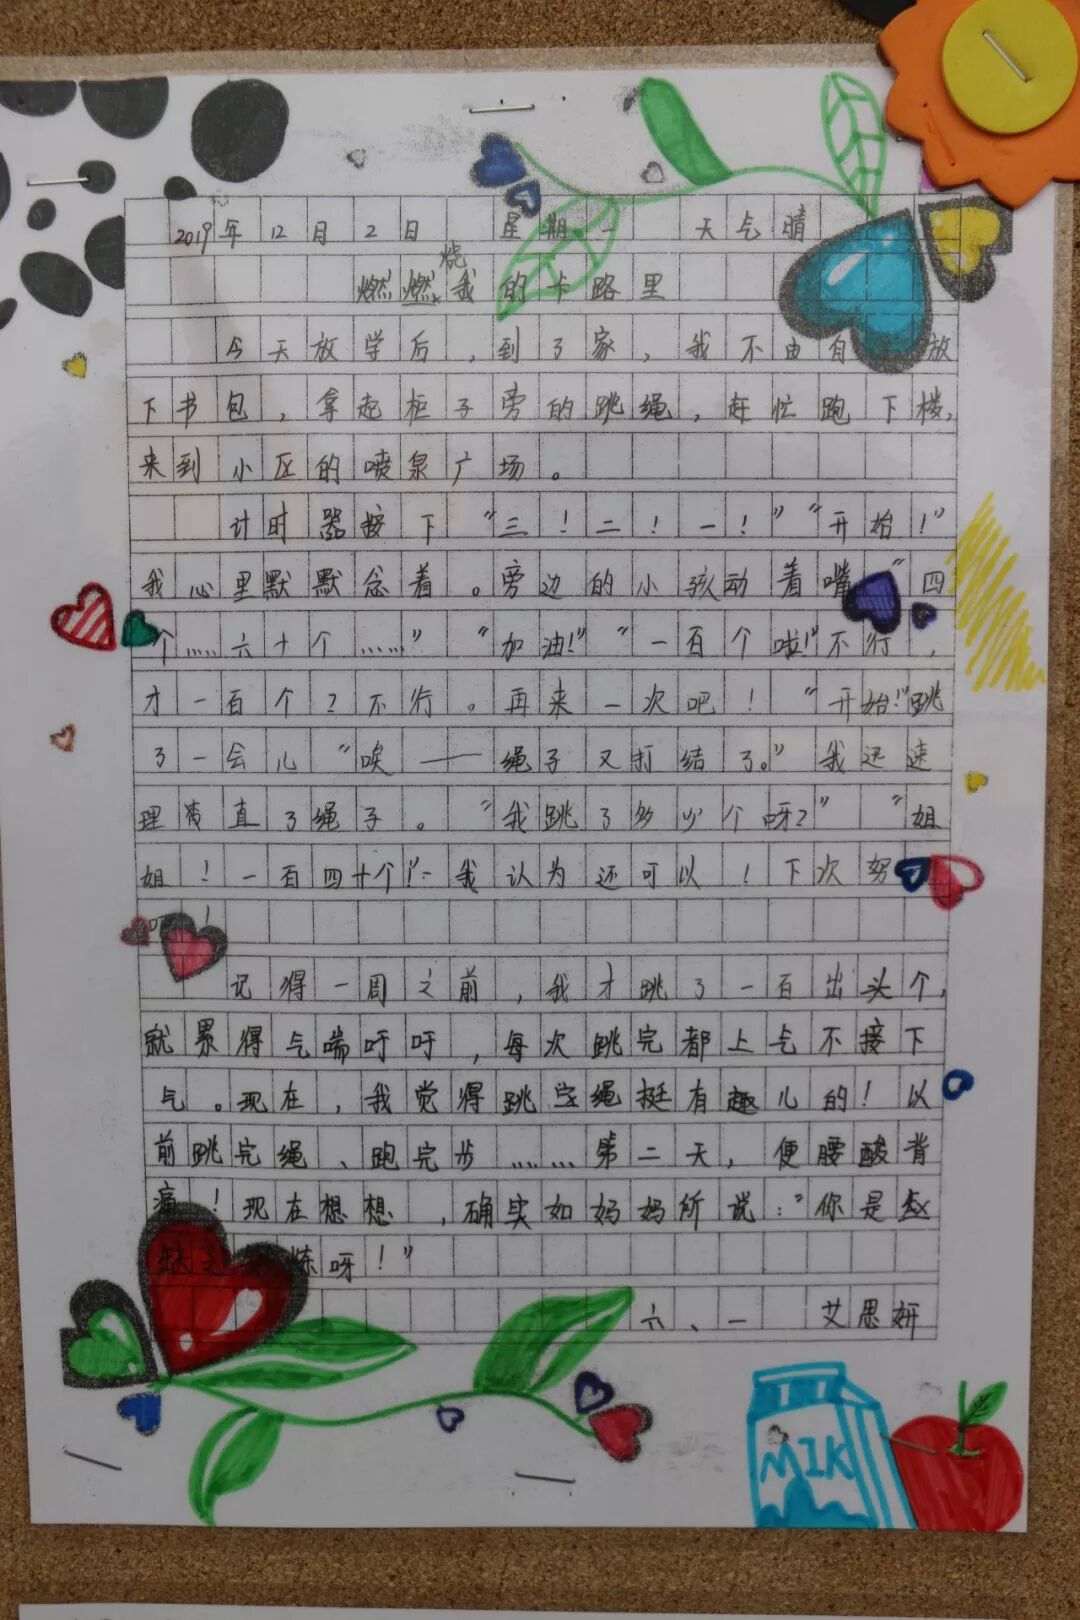 2019年12月2日 星期一 天气晴
燃燃烧我的卡路里
今天放学后，到了家，我不由自 放
下书包，拿起柜子旁的跳绳，赶忙跑下楼，
来到小区的喷泉广场。
计时器按下“三！二！一！”“开始！”
我心里默默念着。旁边的小孩动着嘴“四
个……六十个……”“加油！”“一百个啦！”不行，
才一百个？不行。再来一次吧！“开始！”跳
了一会儿“唉——绳子又打结了。”我迅速
理 直了绳子。“我跳了多少个呀？”“姐
姐！一百四十个！”我认为还可以！下次努
！
记得一周之前，我才跳了一百出头个，
就累得气喘吁吁，每次跳完都上气不接下
气。现在，我觉得跳完绳挺有趣儿的！以
前跳完绳、跑完步……第二天，便腰酸背
痛！现在想想，确实如妈妈所说：“你是
缺 炼呀！”
六、一 艾思妍
MILK